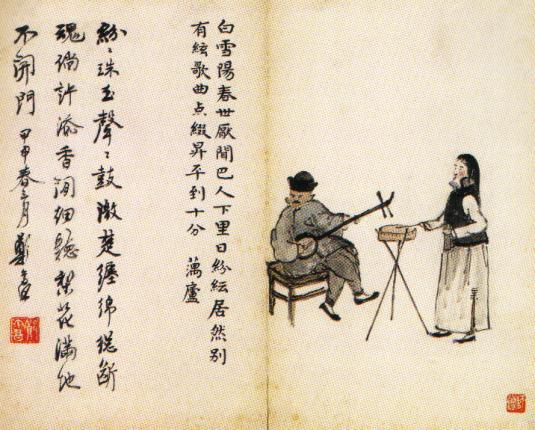 白雪陽春世厭聞巴人下里日紛紜居然別
有絃歌曲点綴昇平到十分 廬
紛〻珠玉聲〻鼓激楚纏綿總斷
魂倘許添香閒細聽梨花滿地
不開門 甲申春三月